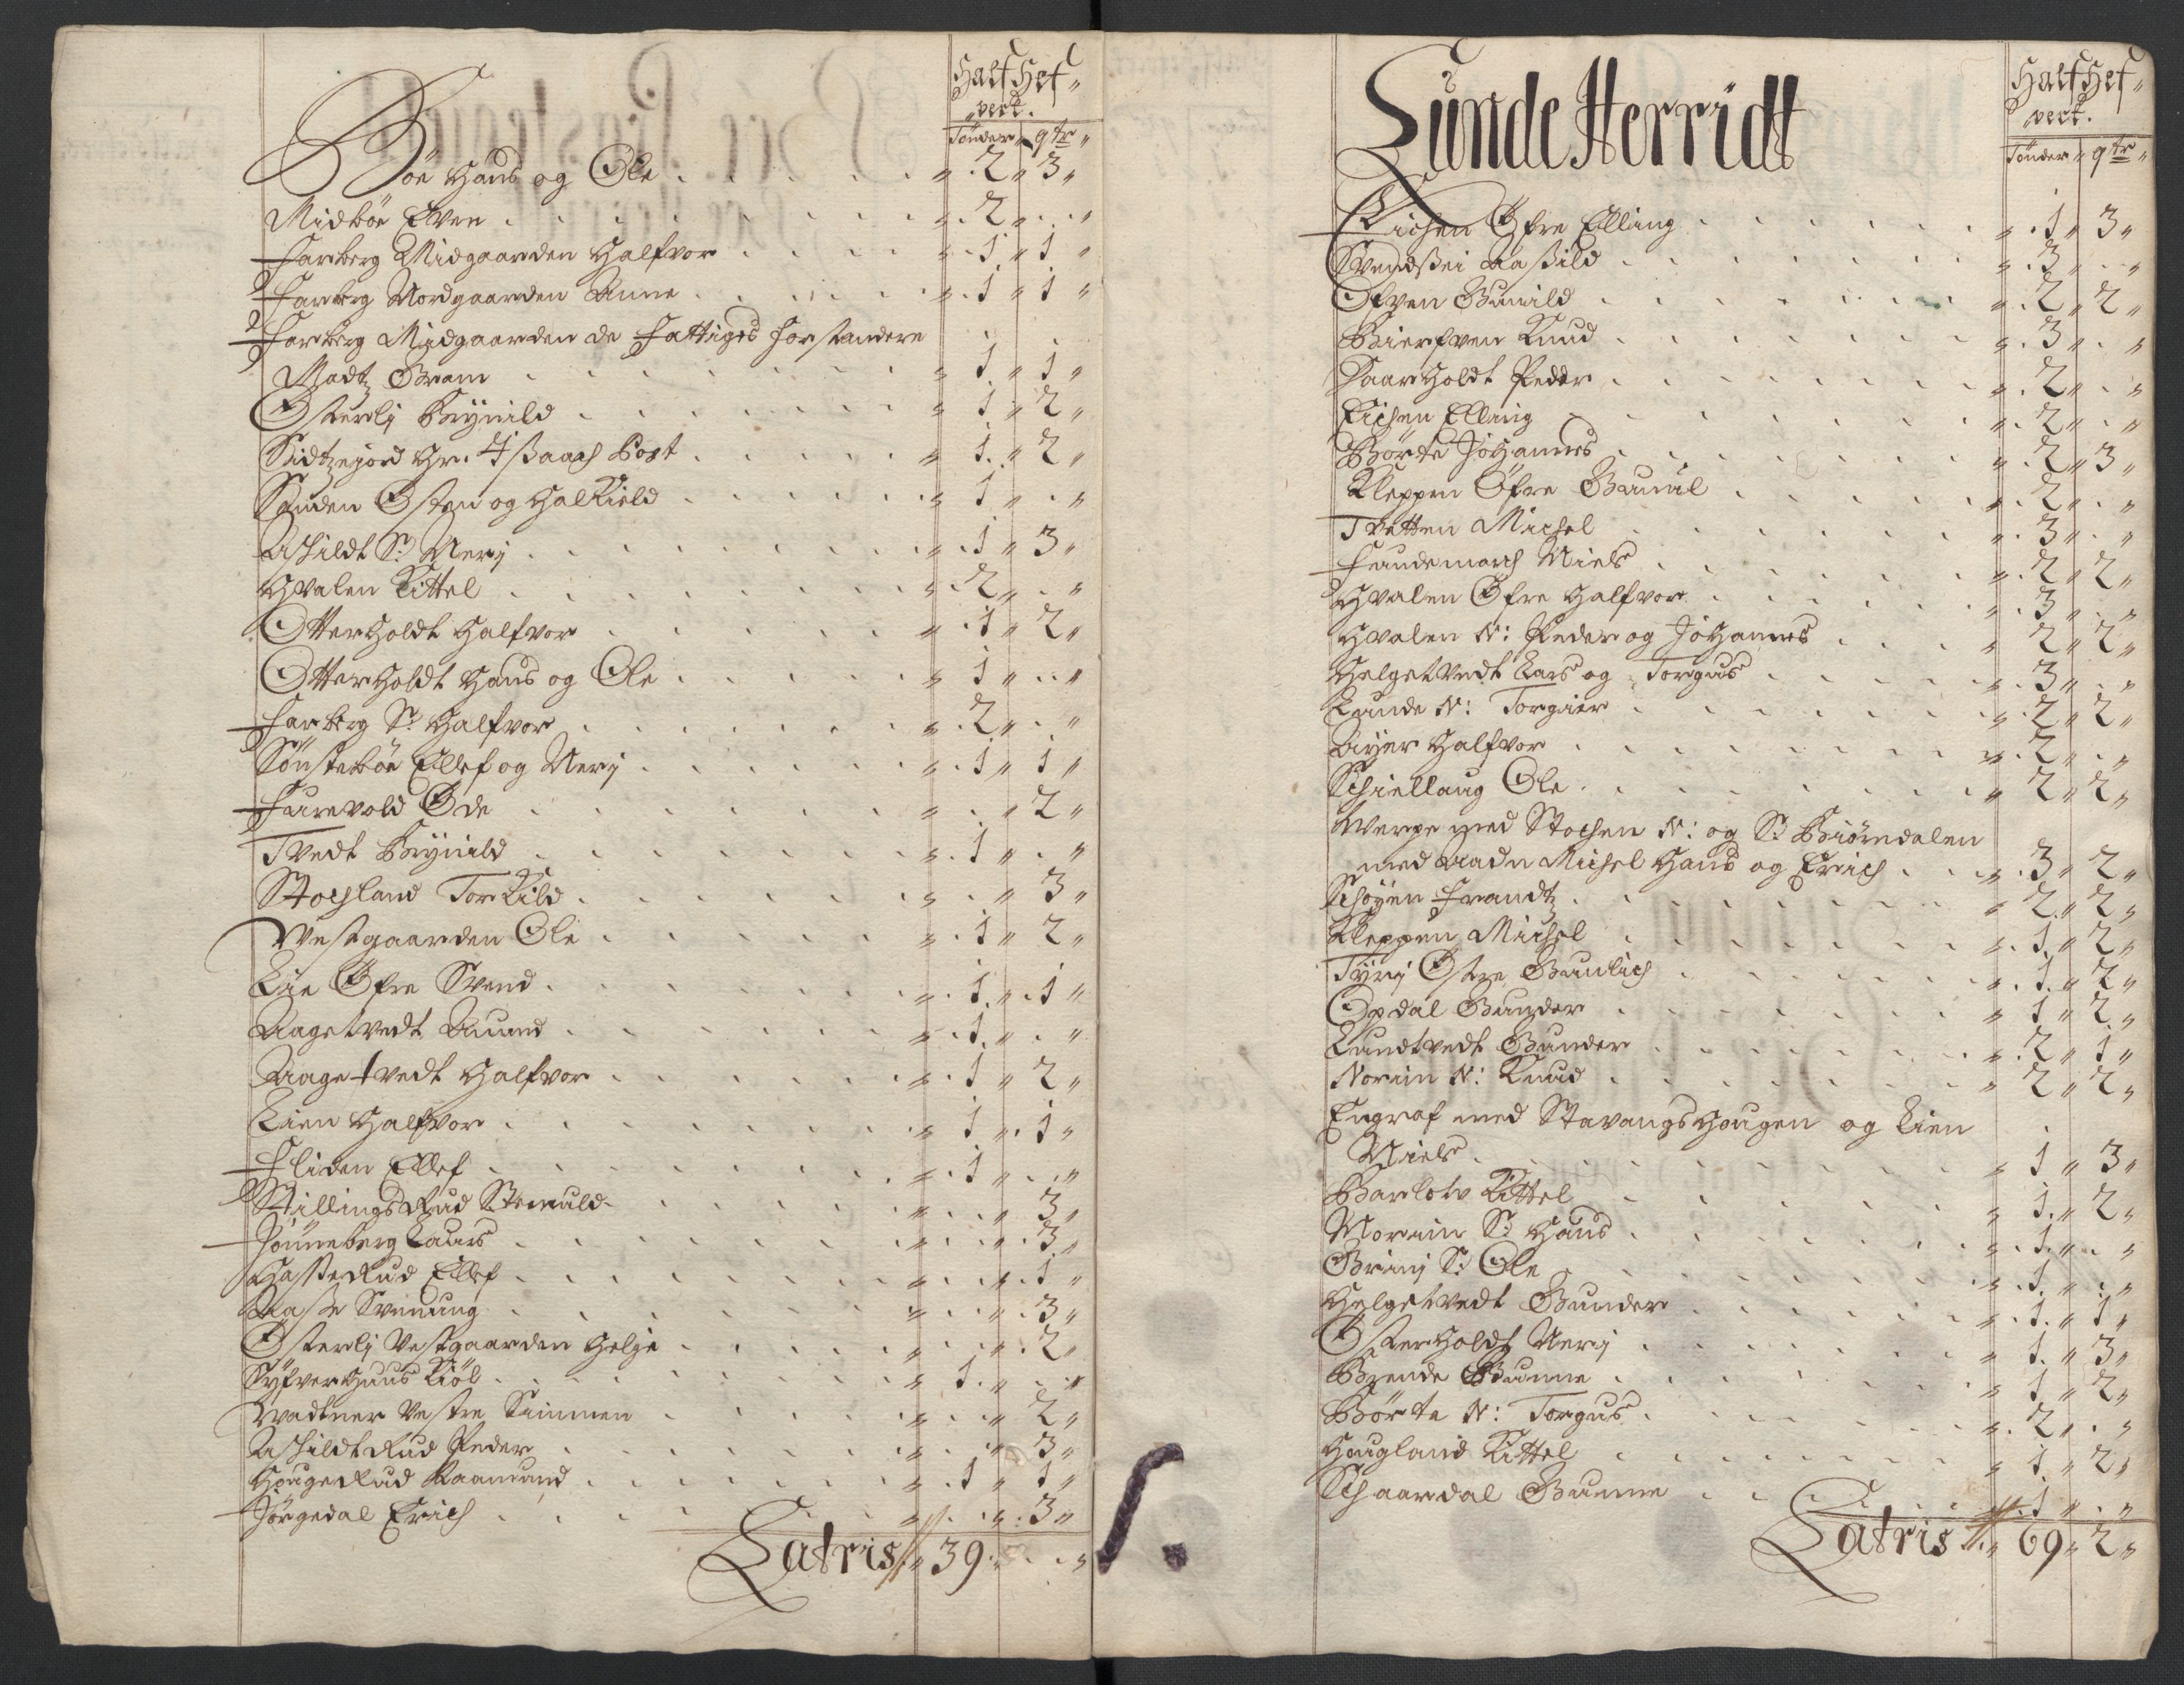 Half Hef
vert.
Tønder qtr
Bøe Hans og Ole . . . . . 2 3
Midbøe Even . . . . . 2 . .
Farberg Midgaarden Halfvor . . . . 1 1
Farberg Nordgaarden Anne . . . . 1 1
Farberg Midgaarden de Fattiges Forstandere
Madtz Gram . . . . . 1 1
Østerlj Brynild . . . . . 1 2
Sidtzejord Hr. Jßaach Post . . . . . 1. 2
Sanden Østen og Halkield . . . . 1 . .
Aschildt S: Nerj . . . . . 1 3
Hvalen Kittel . . . . . 2 . .
Otterholdt Halfvor . . . . . 1 2
Otterholdt Hans og Ole . . . . . 1 . .
Farberg S: Halfvor . . . . . 2 . .
Sønstebøe Ellef og Nerj . . . . . 1 1
Furevold Øde . . . . . 2
Tvedt Brynild . . . . . 1 . .
Stochland Torkild . . . . . 3
Vestgaarden Ole . . . . . 1 2
Lie Øfre Svend . . . . . 1. 1
Aagetvedt Amund . . . . . 1. .
Aagetvedt Halfvor . . . . . 1 2
Lien Halfvor . . . . . 1 1
Fliden Ellef . . . . . 1 . .
StillingsRud Stenuld . . . . . 3
Jønneberg Laurs . . . . . 3
HasteRud Ellef . . . . . 1
Aaße Svenung . . . . . 3
Østerlj Vestgaarden Helje . . . . . 2
Syfverhuus Kiøl . . . . . 1. . .
Vadtner Vestre Simmen . . . . . 2
AschildtRud Peder . . . . . 3
HougeRud Raamund . . . . . 1 1
Jørgedal Erich . . . . . 3
Latris 39 . .
Lunde Herridt
Half Hef
vert.
Tønder qtr
Eichen Øfre Elling . . . . . 1 3
Svendßei Aaßild . . . . . 3 . .
Ofven Gunild . . . . . 2 2
Bierfven Knud . . . . . 3 . .
Saarholdt Peder . . . . . 2 . .
Eichen Elling . . . . . 2 . .
Børte Johannes . . . . . 2 3
Kleppen Øfre Gunuil . . . . . 2 . .
Tvetten Michel . . . . . 3 . .
Fandemarch Niels . . . . . 2 2
Hvalen Øfre Halfvor . . . . . 3 . .
Hvalen N: Peder og Johannes . . . 2 2
Helgetvedt Lars og Torgus . . . . . 3 . .
Lunde N: Torgier . . . . . 2 2
Ajer Halfvor . . . . . 2 . .
Schiellaug Ole . . . . . 2 2
Verpe med Stochen N: og S: Biørndalen
med Aadn Michel Hans og Erich . . . 3 2
Schøyen Frandtz . . . . . 2 2
Kleppen Michel . . . . . 1 2
Tyrj Østre Gunlich . . . . . 1. 2
Opdal Gunder . . . . . 1 2
Lundtvedt Gunder . . . . . 2 1
Norim N: Knud . . . . . 2 2
Engraf med StavangsHougen og Lien
Niels . . . . . 1 3
Barlow Kittel . . . . . 1. 2
Norim S: Hans . . . . . 1. . .
Grinj S: Ole . . . . . 1. . .
Helgetvedt Gunder . . . . . 1. 1
Østerholdt Nerj . . . . . 1. 3
Brende Gunne . . . . . 1 2
Børte N: Torgus . . . . . 2 . .
Hougland Kittel . . . . . 1 2
Schaardal Gunne . . . . . 1 . .
Latris 69 2